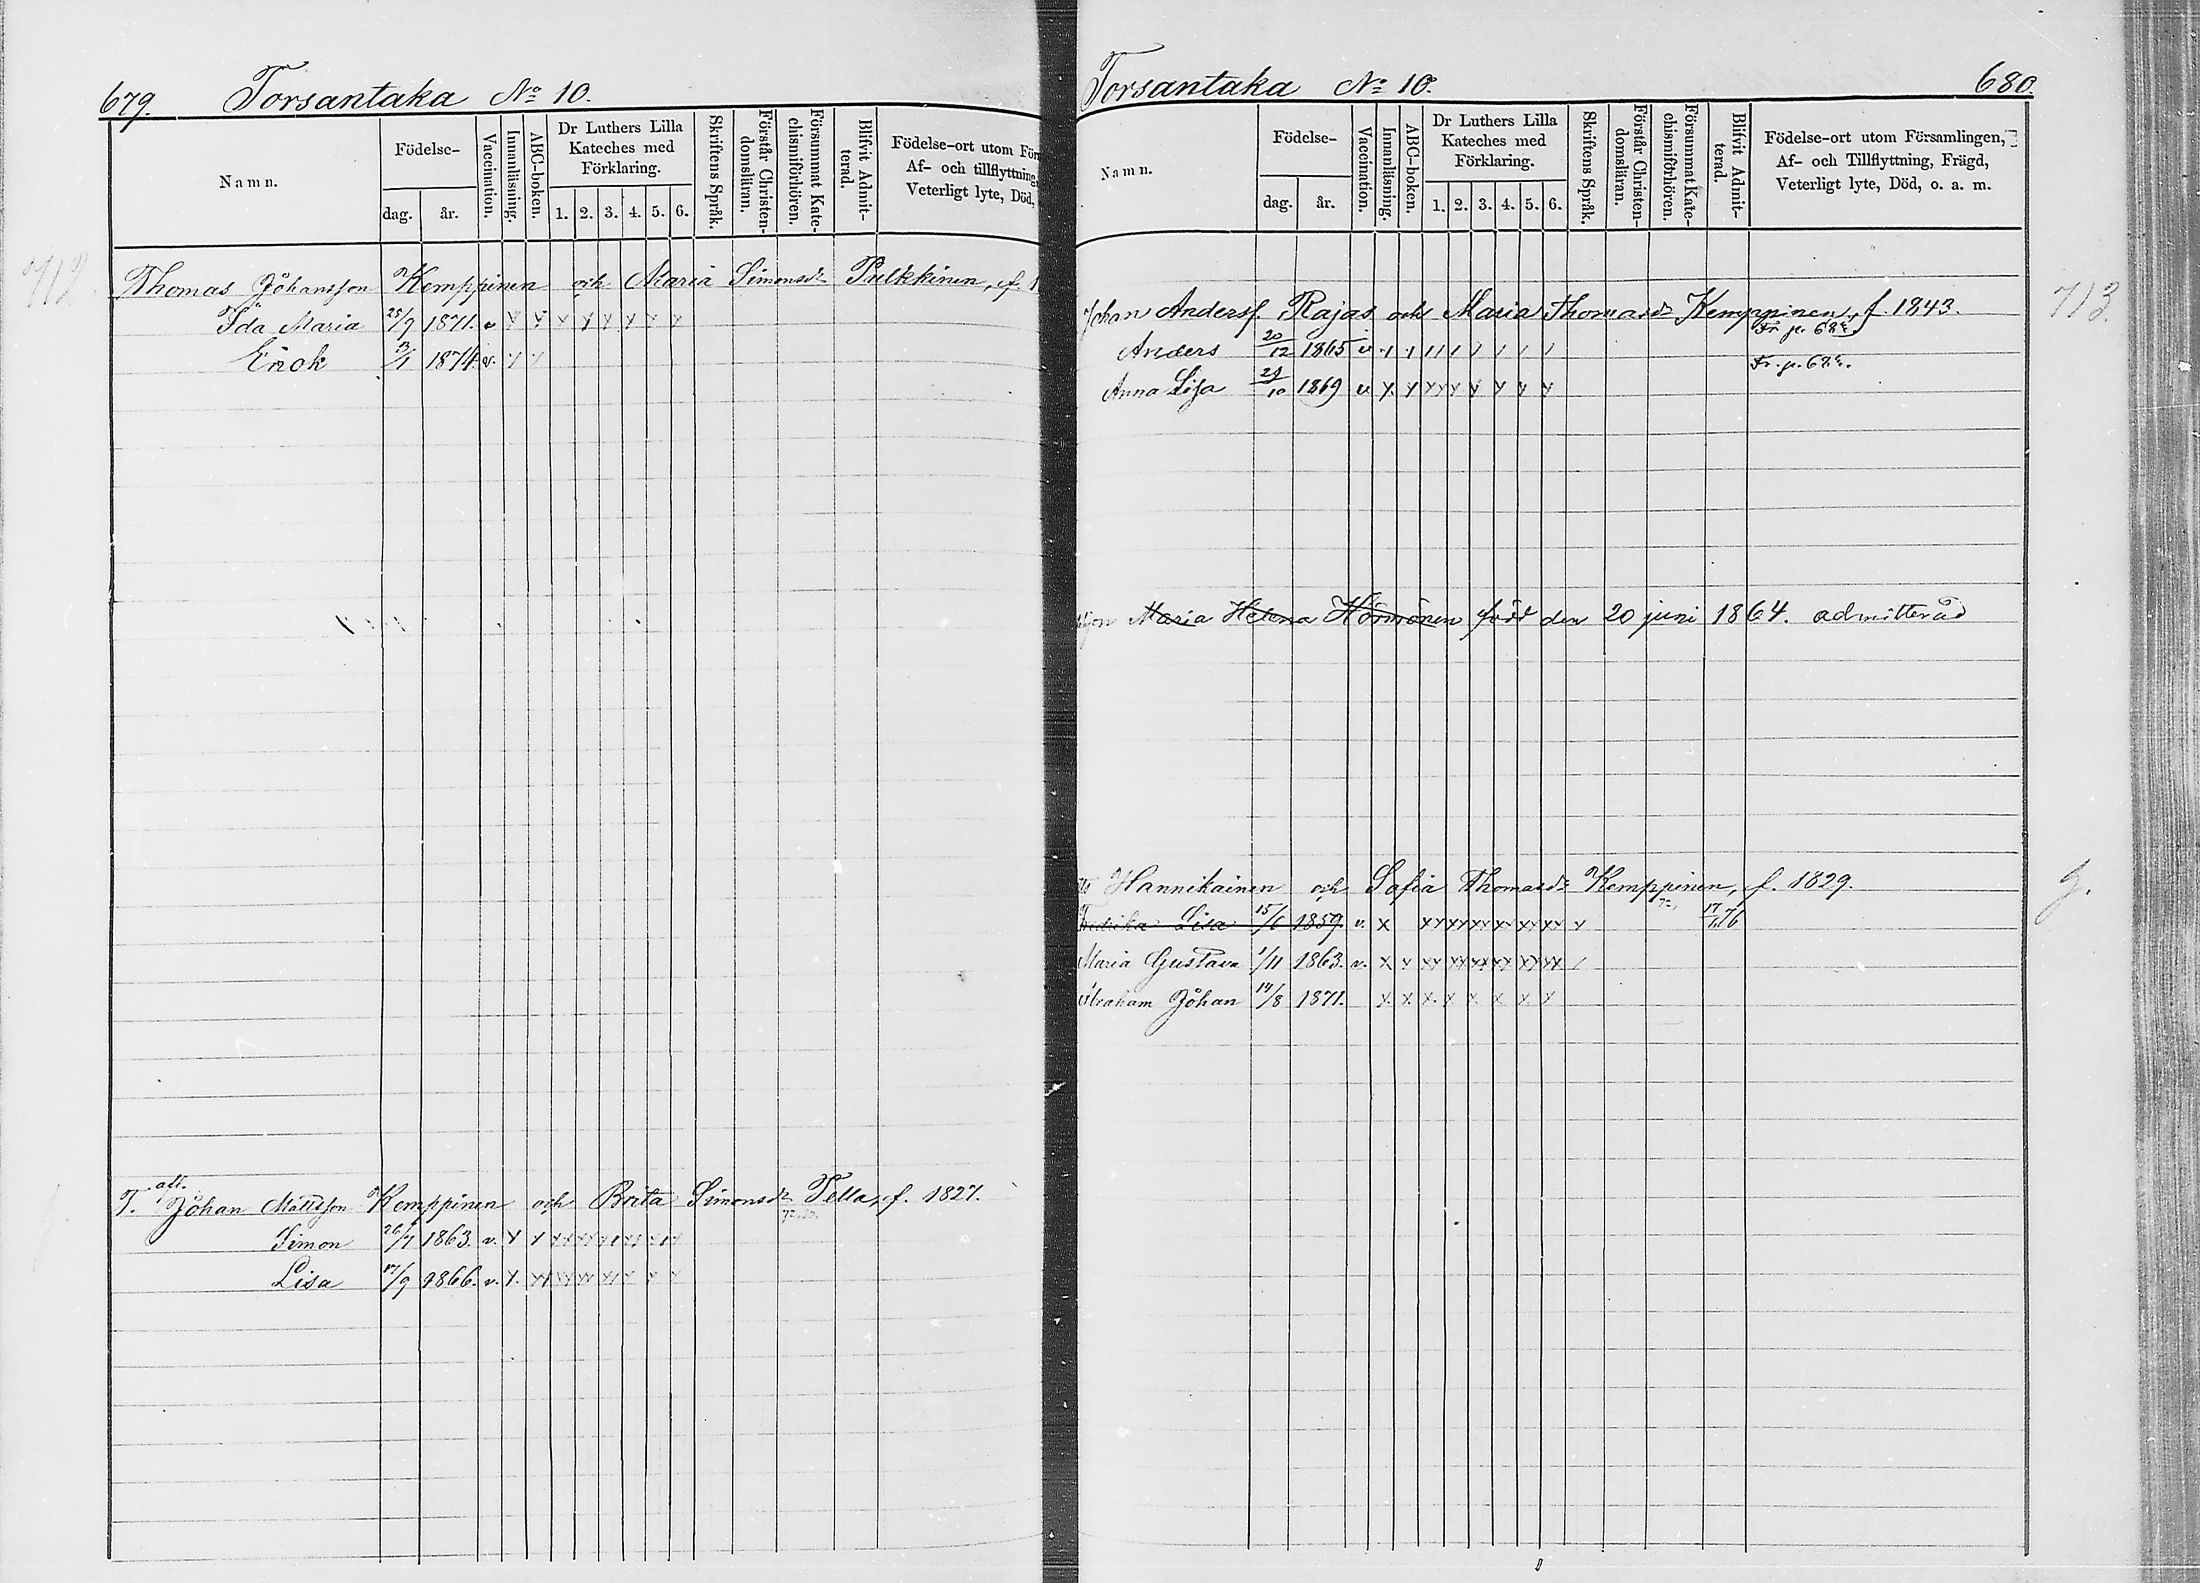 679. Torsantaka No 10.
Namn.
Födelse-
dag. år.
Vaccination.
Innanläsning.
ABC-boken.
Dr Luthers Lilla
Kateches med
Förklaring.
1. 2. 3. 4. 5. 6.
Skriftens Språk.
Förstår Christen-
domsläran.
Försummat Kate-
chismiförhören.
Blifvit Admit-
terad.
Födelse-ort utom För
Af- och tillflyttning,
Veterligt lyte, Död,
712.
Thomas Johansson Kemppinen och Maria Simonsdr Pulkkinen, f. 1
Ida Maria 25/9 1871. v x x x x x x x x
Enok 3/1 1874 v. x x
T. aft. Johan Mattsson Kemppinen och Brita Simonsdr Tella, f. 1827.
Simon 26/1 1863. v. x x
Lisa 17/9 1866. v. x.
Torsantaka No 10. 680.
Namn.
Födelse-
dag. år.
Vaccination.
Innanläsning.
ABC-boken.
Dr Luthers Lilla
Kateches med
Förklaring.
1. 2. 3. 4. 5. 6.
Skriftens Språk.
Förstår Christen-
domsläran.
Försummat Kate-
chismiförhören.
Blifvit Admit-
terad.
Födelse-ort utom Församlingen,
Af- och Tillflyttning, Frägd,
Veterligt lyte, Död, o. a. m.
713.
Johan Andersf. Rajas och Maria Thomasdr Kemppinen, f. 1843.
Anders 20/12 1865 v
Anna Lisa 29/10 1869 v. x. x x x x x x x x
Maria Helena Hörmönen född den 20 juni 1864. admitterad
Hannikainen och Sofia Thomasdr Kemppinen, f. 1829.
Fredrika Lisa 15/6 1859 v. x xx xx xx xx xx xx x 17/6 76
Maria Gustava 1/11 1863. v. x x xx xx xx xx xx xx
Abraham Johan 14/8 1871. x. x. x. x. x. x x. x